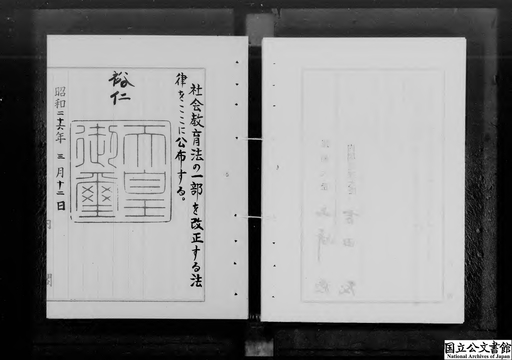 社会教育法の一部を改正する法
律をここに公布する。
裕仁
天皇
御璽
昭和二十六年三月十二日
内
閣
国立公文書館
National Archives of Japan